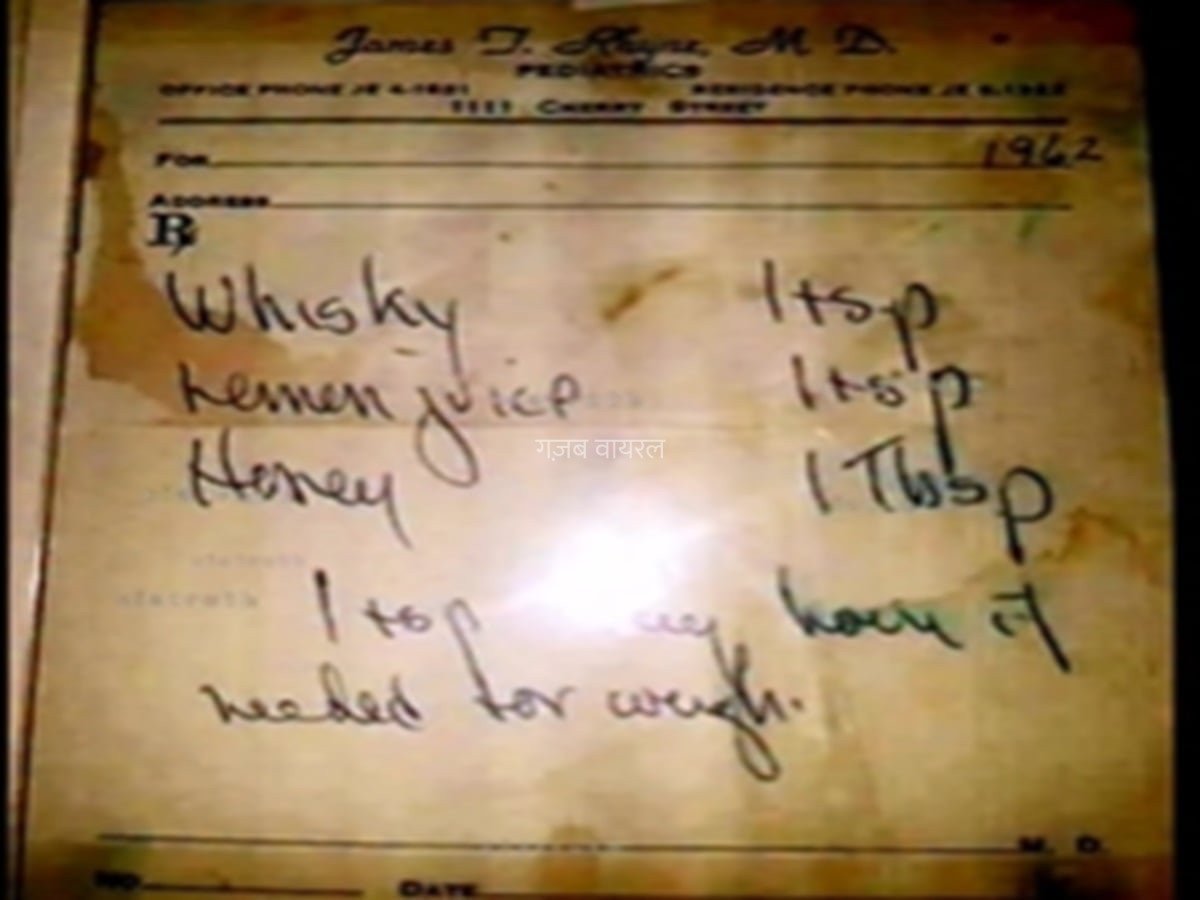 James T. Rhyne, M. D.
PEDIATRICS
OFFICE PHONE JE 4-1521 RESIDENCE PHONE JE
1111 CHERRY STREET
FOR 1962
ADDRESS
℞
Whisky 1 tsp
Lemon juice 1 tsp
Honey 1 Tbsp
गज़ब वायरल
1 tsp hour if
needed for cough.
M. D.
NO. DATE